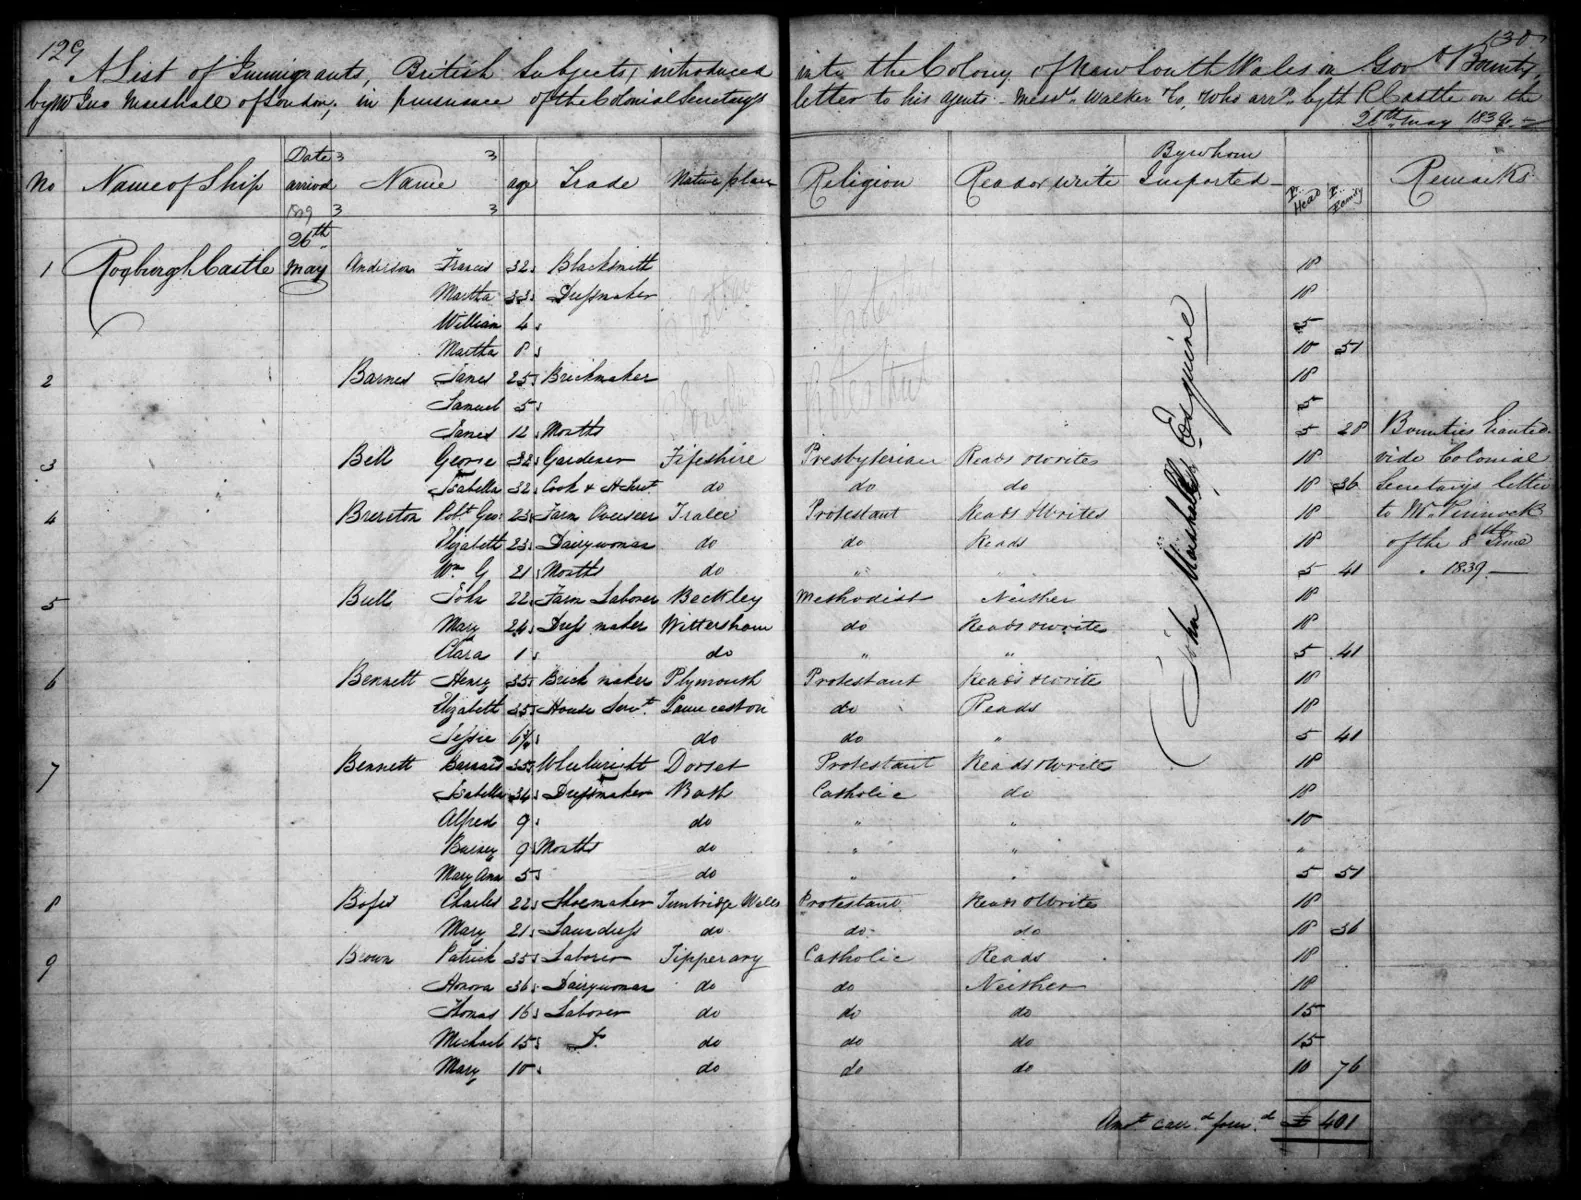 129
130
A List of Immigrants, British Subjects, introduced into the Colony of New South Wales on Govt Bounty,
by Mr Marshall of London, in pursuance of the Colonial Secretary's letter to his agents Messrs Walker & Co, who arrd by the R Castle on the
26th May 1839
No Name of Ship Date arrived 1839 Name age Trade Native place Religion Read or write By whom Imported Pr Head Pr Family Remarks
26th
1 Roxburgh Castle May Anderson Francis 32 Blacksmith 18
Martha 33 Dressmaker 18
William 4 5
Martha 8 10 51
2 Barnes James 25 Brickmaker Protestant 18
Samuel 5 5
James 12 Months 5 28 Bounties
3 Bell George 32 Gardener Fifeshire Presbyterian Reads & Writes 18 vide Colonial
Isabella 32 Cook & H Servt do do do 18 36 Secretarys letter
4 Brereton Robt Geo 23 Farm Overseer Tralee Protestant Reads & Writes 18 to Mr Pinnock
Elizabeth 23 Dairywoman do do Reads 18 of the 8th June
Wm G 21 Months do " " 5 41 " 1839
5 Bull John 22 Farm Laborer Beckley Methodist Neither 18
Mary 24 Dress maker Wittersham do Reads & write 18
Clara 1 do " " 5 41
6 Bennett Henry 35 Brick maker Plymouth Protestant Reads & write 18
Elizabeth 35 House Servt Launceston do Reads 18
Jessie 6 do do " 5 41
7 Bennett Barnard 35 Wheelwright Dorset Protestant Reads & write 18
Isabella 34 Dressmaker Bath Catholic do 18
Alfred 9 do " " 10
Barney 9 Months do " " "
Mary Ann 5 do " " 5 51
8 Charles 22 Shoemaker Tunbridge Wells Protestant Reads & Write 18
Mary 21 Laundress do do do 18 36
9 Brown Patrick 35 Laborer Tipperary Catholic Reads 18
Honora 36 Dairywoman do do Neither 18
Thomas 16 Laborer do do do 15
Michael 15 do do do 15
Mary 10 do do do 10 76
John Marshall Esquire
Amt carrd forwd £ 401